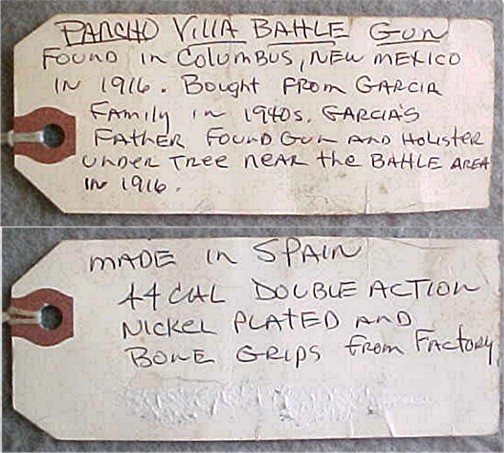 PANCHO VILLA BATTLE GUN
FOUND IN COLUMBUS, NEW MEXICO
IN 1916. Bought FROM GARCIA
FAMILY IN 1940s. GARCIA'S
FATHER FOUND GUN AND HOLISTER
UNDER TREE NEAR the BATTLE AREA
IN 1916.
MADE IN SPAIN
44 CAL DOUBLE ACTION
NICKEL PLATED AND
BONE GRIPS FROM FACTORY.